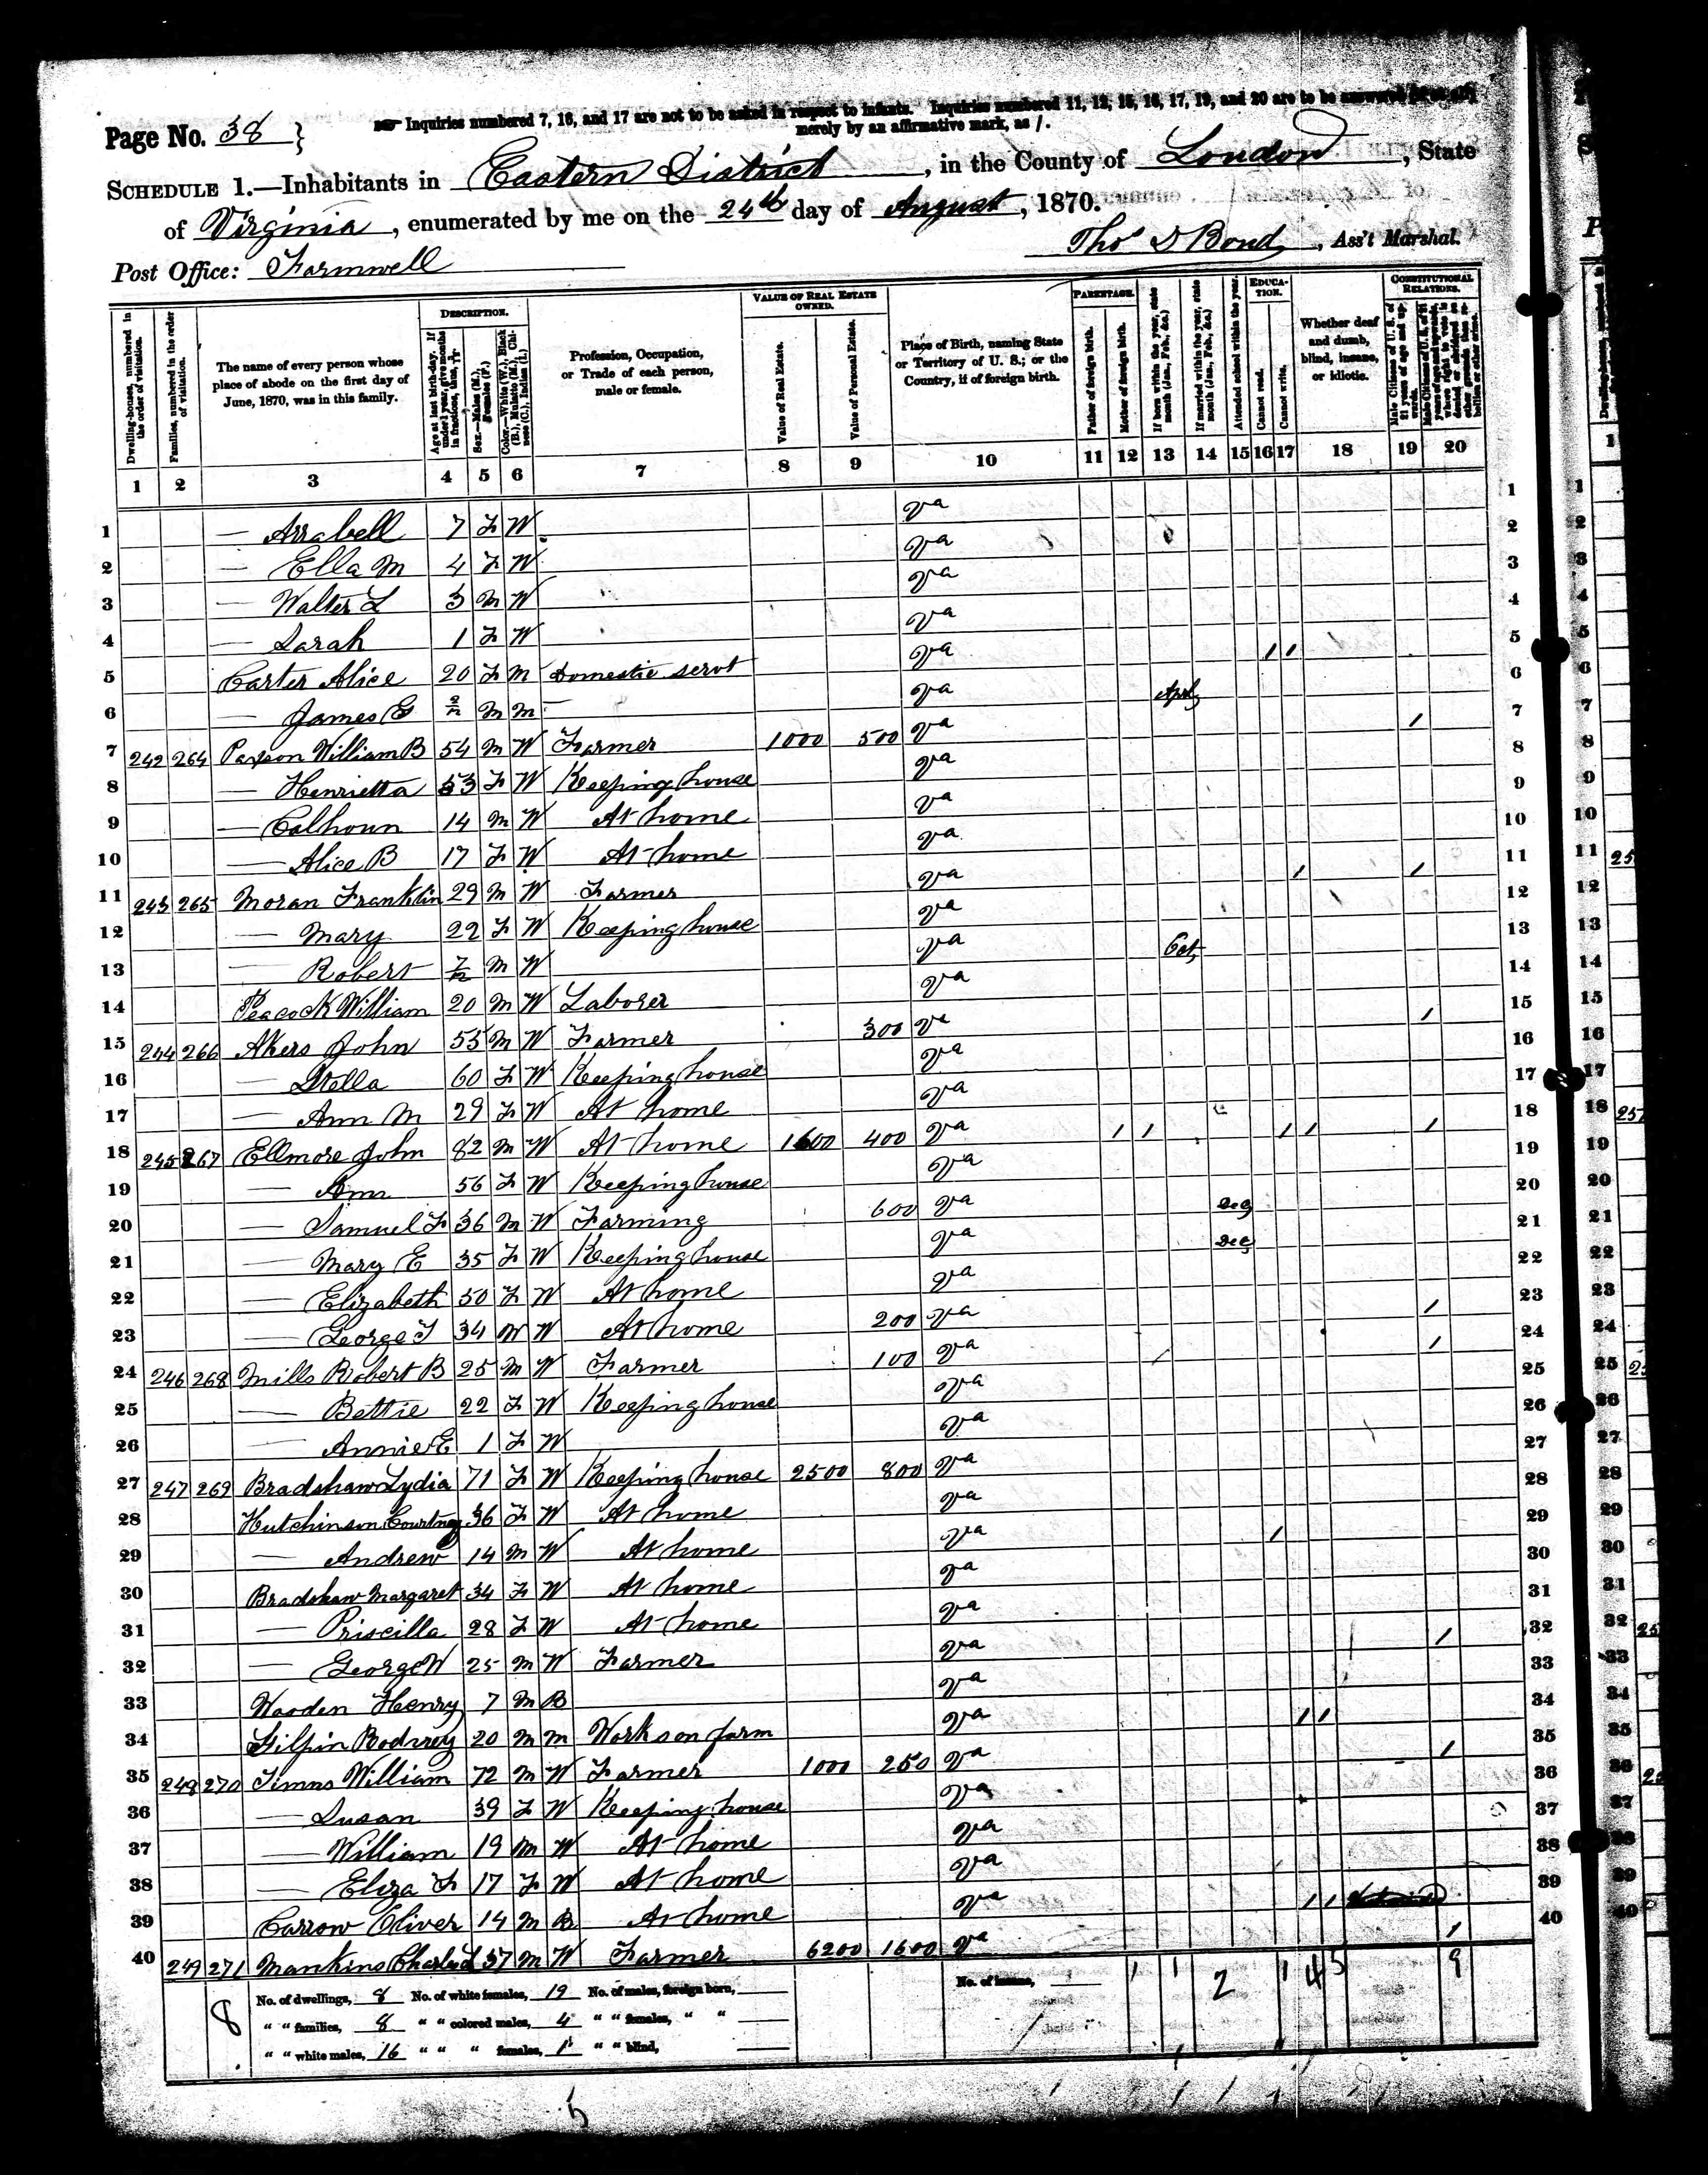 Page No. 38
Inquiries numbered 7, 16, and 17 are not to be asked in respect to infants. Inquiries numbered 11, 12, 15, 16, 17, 19, and 20 are to be answered
merely by an affirmative mark, as /.
SCHEDULE 1.—Inhabitants in Eastern District, in the County of Loudon, State
of Virginia, enumerated by me on the 24th day of August, 1870.
Post Office: Farmwell
Thos D Bond, Ass't Marshal.
Dwelling-houses, numbered in the order of visitation.
Families, numbered in the order of visitation.
The name of every person whose place of abode on the first day of June, 1870, was in this family.
DESCRIPTION.
Age at last birth-day. If under 1 year, give months in fractions, thus,
Sex.—Males (M.), Females (F.)
Color.—White (W.), Black (B.), Mulatto (M.), Chinese (C.), Indian (I.)
Profession, Occupation, or Trade of each person, male or female.
VALUE OF REAL ESTATE OWNED.
Value of Real Estate.
Value of Personal Estate.
Place of Birth, naming State or Territory of U. S.; or the Country, if of foreign birth.
PARENTAGE.
Father of foreign birth.
Mother of foreign birth.
If born within the year, state month (Jan., Feb., &c.)
If married within the year, state month (Jan., Feb., &c.)
Attended school within the year.
EDUCATION.
Cannot read.
Cannot write.
Whether deaf and dumb, blind, insane, or idiotic.
CONSTITUTIONAL RELATIONS.
Male Citizens of U. S. of 21 years of age and upwards.
Male Citizens of U. S. of 21 years of age and upwards, where right to vote is denied or abridged on other grounds than rebellion or other crime.
1 2 3 4 5 6 7 8 9 10 11 12 13 14 15 16 17 18 19 20
1 — Arrabell 7 F W Va 1
2 — Ella M 4 F W Va 2
3 — Walter L 3 M W Va 3
4 — Sarah 1 F W Va 4
5 Carter Alice 20 F M Domestic servt Va / / 5
6 — James G 2/12 M M Va Apl 6
7 242 264 Paxson William B 54 M W Farmer 1000 500 Va / 7
8 — Henrietta 53 F W Keeping house Va 8
9 — Calhoun 14 M W At home Va 9
10 — Alice B 17 F W At home Va 10
11 243 265 Moran Franklin 29 M W Farmer Va / / 11
12 — Mary 22 F W Keeping house Va 12
13 — Robert 7/12 M W Va Oct 13
14 Peacock William 20 M W Laborer Va 14
15 244 266 Akers John 55 M W Farmer 300 Va / 15
16 — Stella 60 F W Keeping house Va 16
17 — Ann M 29 F W At home Va 17
18 245 267 Ellmore John 82 M W At home 1600 400 Va / / / / / 18
19 — Ann 56 F W Keeping house Va 19
20 — Samuel F 36 M W Farming 600 Va Dec 20
21 — Mary E 35 F W Keeping house Va Dec 21
22 — Elizabeth 50 F W At home Va 22
23 — George T 34 M W At home 200 Va / 23
24 246 268 Mills Robert B 25 M W Farmer 100 Va / / 24
25 — Bettie 22 F W Keeping house Va 25
26 — Annie E 1 F W Va 26
27 247 269 Bradshaw Lydia 71 F W Keeping house 2500 800 Va 27
28 Hutchinson Courtney 36 F W At home Va 28
29 — Andrew 14 M W At home Va / 29
30 Bradshaw Margaret 34 F W At home Va 30
31 — Priscilla 28 F W At home Va 31
32 — George W 25 M W Farmer Va / 32
33 Wooden Henry 7 M B Va 33
34 Gilpin 20 M M Works on farm Va / / 34
35 248 270 Timns William 72 M W Farmer 1000 250 Va / 35
36 — Susan 39 F W Keeping house Va 36
37 — William 19 M W At home Va 37
38 — Eliza F 17 F W At home Va 38
39 Carrow Oliver 14 M B At home Va / / 39
40 249 271 Mankins Charles 37 M W Farmer 6200 1600 Va / 40
8 No. of dwellings, 8 No. of white females, 19 No. of males, foreign born, No. of insane, 1 1 2 1 4 5 9
" " families, 8 " " colored males, 4 " " females, " "
" " white males, 16 " " " females, 1 " " blind,